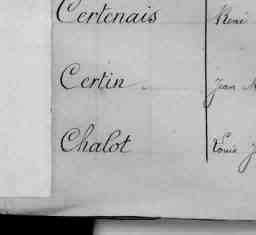 Certenais René
Certin Jean
Chalot Louis